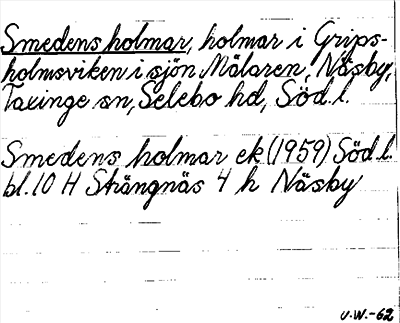 Smedens holmar, holmar i Grips-
holmsviken i sjön Mälaren, Näsby,
Taxinge sn, Selebo hd, Söd.l.
Smedens holmar ek (1959) Söd.l.
bl. 10 H Strängnäs 4 h Näsby
U.W.-62